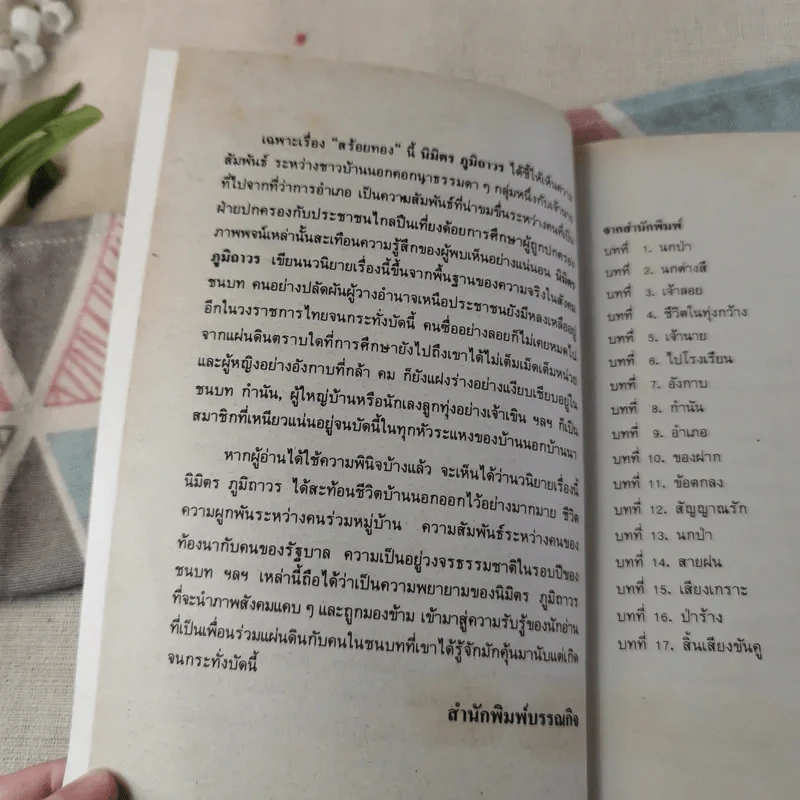 เฉพาะเรื่อง "สร้อยทอง" นี้ นิมิตร ภูมิถาวร ได้ชี้ให้เห็นความ
สัมพันธ์ ระหว่างชาวบ้านนอกคอกนาธรรมดา ๆ กลุ่มหนึ่งกับเจ้านาย
ที่ไปจากที่ว่าการอำเภอ เป็นความสัมพันธ์ที่น่าขมขื่นระหว่างคนที่เป็น
ฝ่ายปกครองกับประชาชนไกลปืนเที่ยงด้อยการศึกษาผู้ถูกปกครอง
ภาพพจน์เหล่านั้นสะเทือนความรู้สึกของผู้พบเห็นอย่างแน่นอน นิมิตร
ภูมิถาวร เขียนนวนิยายเรื่องนี้ขึ้นจากพื้นฐานของความจริงในสังคม
ชนบท คนอย่างปลัดผันผู้วางอำนาจเหนือประชาชนยังมีหลงเหลืออยู่
อีกในวงราชการไทยจนกระทั่งบัดนี้ คนซื่ออย่างลอยก็ไม่เคยหมดไป
จากแผ่นดินตราบใดที่การศึกษายังไปถึงเขาได้ไม่เต็มเม็ดเต็มหน่วย
และผู้หญิงอย่างอังกาบที่กล้า คม ก็ยังแฝงร่างอย่างเงียบเชียบอยู่ใน
ชนบท กำนัน, ผู้ใหญ่บ้านหรือนักเลงลูกทุ่งอย่างเจ้าเขิน ฯลฯ ก็เป็น
สมาชิกที่เหนียวแน่นอยู่จนบัดนี้ในทุกหัวระแหงของบ้านนอกบ้านนา
หากผู้อ่านได้ใช้ความพินิจบ้างแล้ว จะเห็นได้ว่านวนิยายเรื่องนี้
นิมิตร ภูมิถาวร ได้สะท้อนชีวิตบ้านนอกออกไว้อย่างมากมาย ชีวิต
ความผูกพันระหว่างคนร่วมหมู่บ้าน ความสัมพันธ์ระหว่างคนของ
ท้องนากับคนของรัฐบาล ความเป็นอยู่วงจรธรรมชาติในรอบปีของ
ชนบท ฯลฯ เหล่านี้ถือได้ว่าเป็นความพยายามของนิมิตร ภูมิถาวร
ที่จะนำภาพสังคมแคบ ๆ และถูกมองข้าม เข้ามาสู่ความรับรู้ของนักอ่าน
ที่เป็นเพื่อนร่วมแผ่นดินกับคนในชนบทที่เขาได้รู้จักมักคุ้นมานับแต่เกิด
จนกระทั่งบัดนี้
สำนักพิมพ์บรรณกิจ
จากสำนักพิมพ์
บทที่ 1. นกป่า
บทที่ 2. นกต่างสี
บทที่ 3. เจ้าลอย
บทที่ 4. ชีวิตในทุ่งกว้าง
บทที่ 5. เจ้านาย
บทที่ 6. ไปโรงเรียน
บทที่ 7. อังกาบ
บทที่ 8. กำนัน
บทที่ 9. อำเภอ
บทที่ 10. ของฝาก
บทที่ 11. ข้อตกลง
บทที่ 12. สัญญาณรัก
บทที่ 13. นกป่า
บทที่ 14. สายฝน
บทที่ 15. เสียงเกราะ
บทที่ 16. ป่าร้าง
บทที่ 17. สิ้นเสียงขันคู